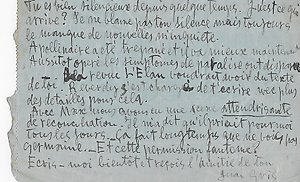 Tu es bien silencieux depuis quelque temps. Qu'est ce qui
arrive? Je ne blame pas ton silence mais toujours
le manque de nouvelles m'inquiete.
Apollinaire a été trepané et il va mieux maintenant
Aussitot operé les symptomes de paralisie ont disparu
La revue l'Elan voudrait avoir du texte
de toi. Reverdy s'est chargé de t'ecrire avec plus
des details pour cela.
Avec Max nous avons eu une scene attendrisante
de reconciliation. Il m'a dit qu'il priait pour moi
tous les jours. Ça fait longtemps que ne vois pas
germaine. Et cette permission fantome?
Ecris-moi bientot et reçois l'amitié de ton
Juan Gris